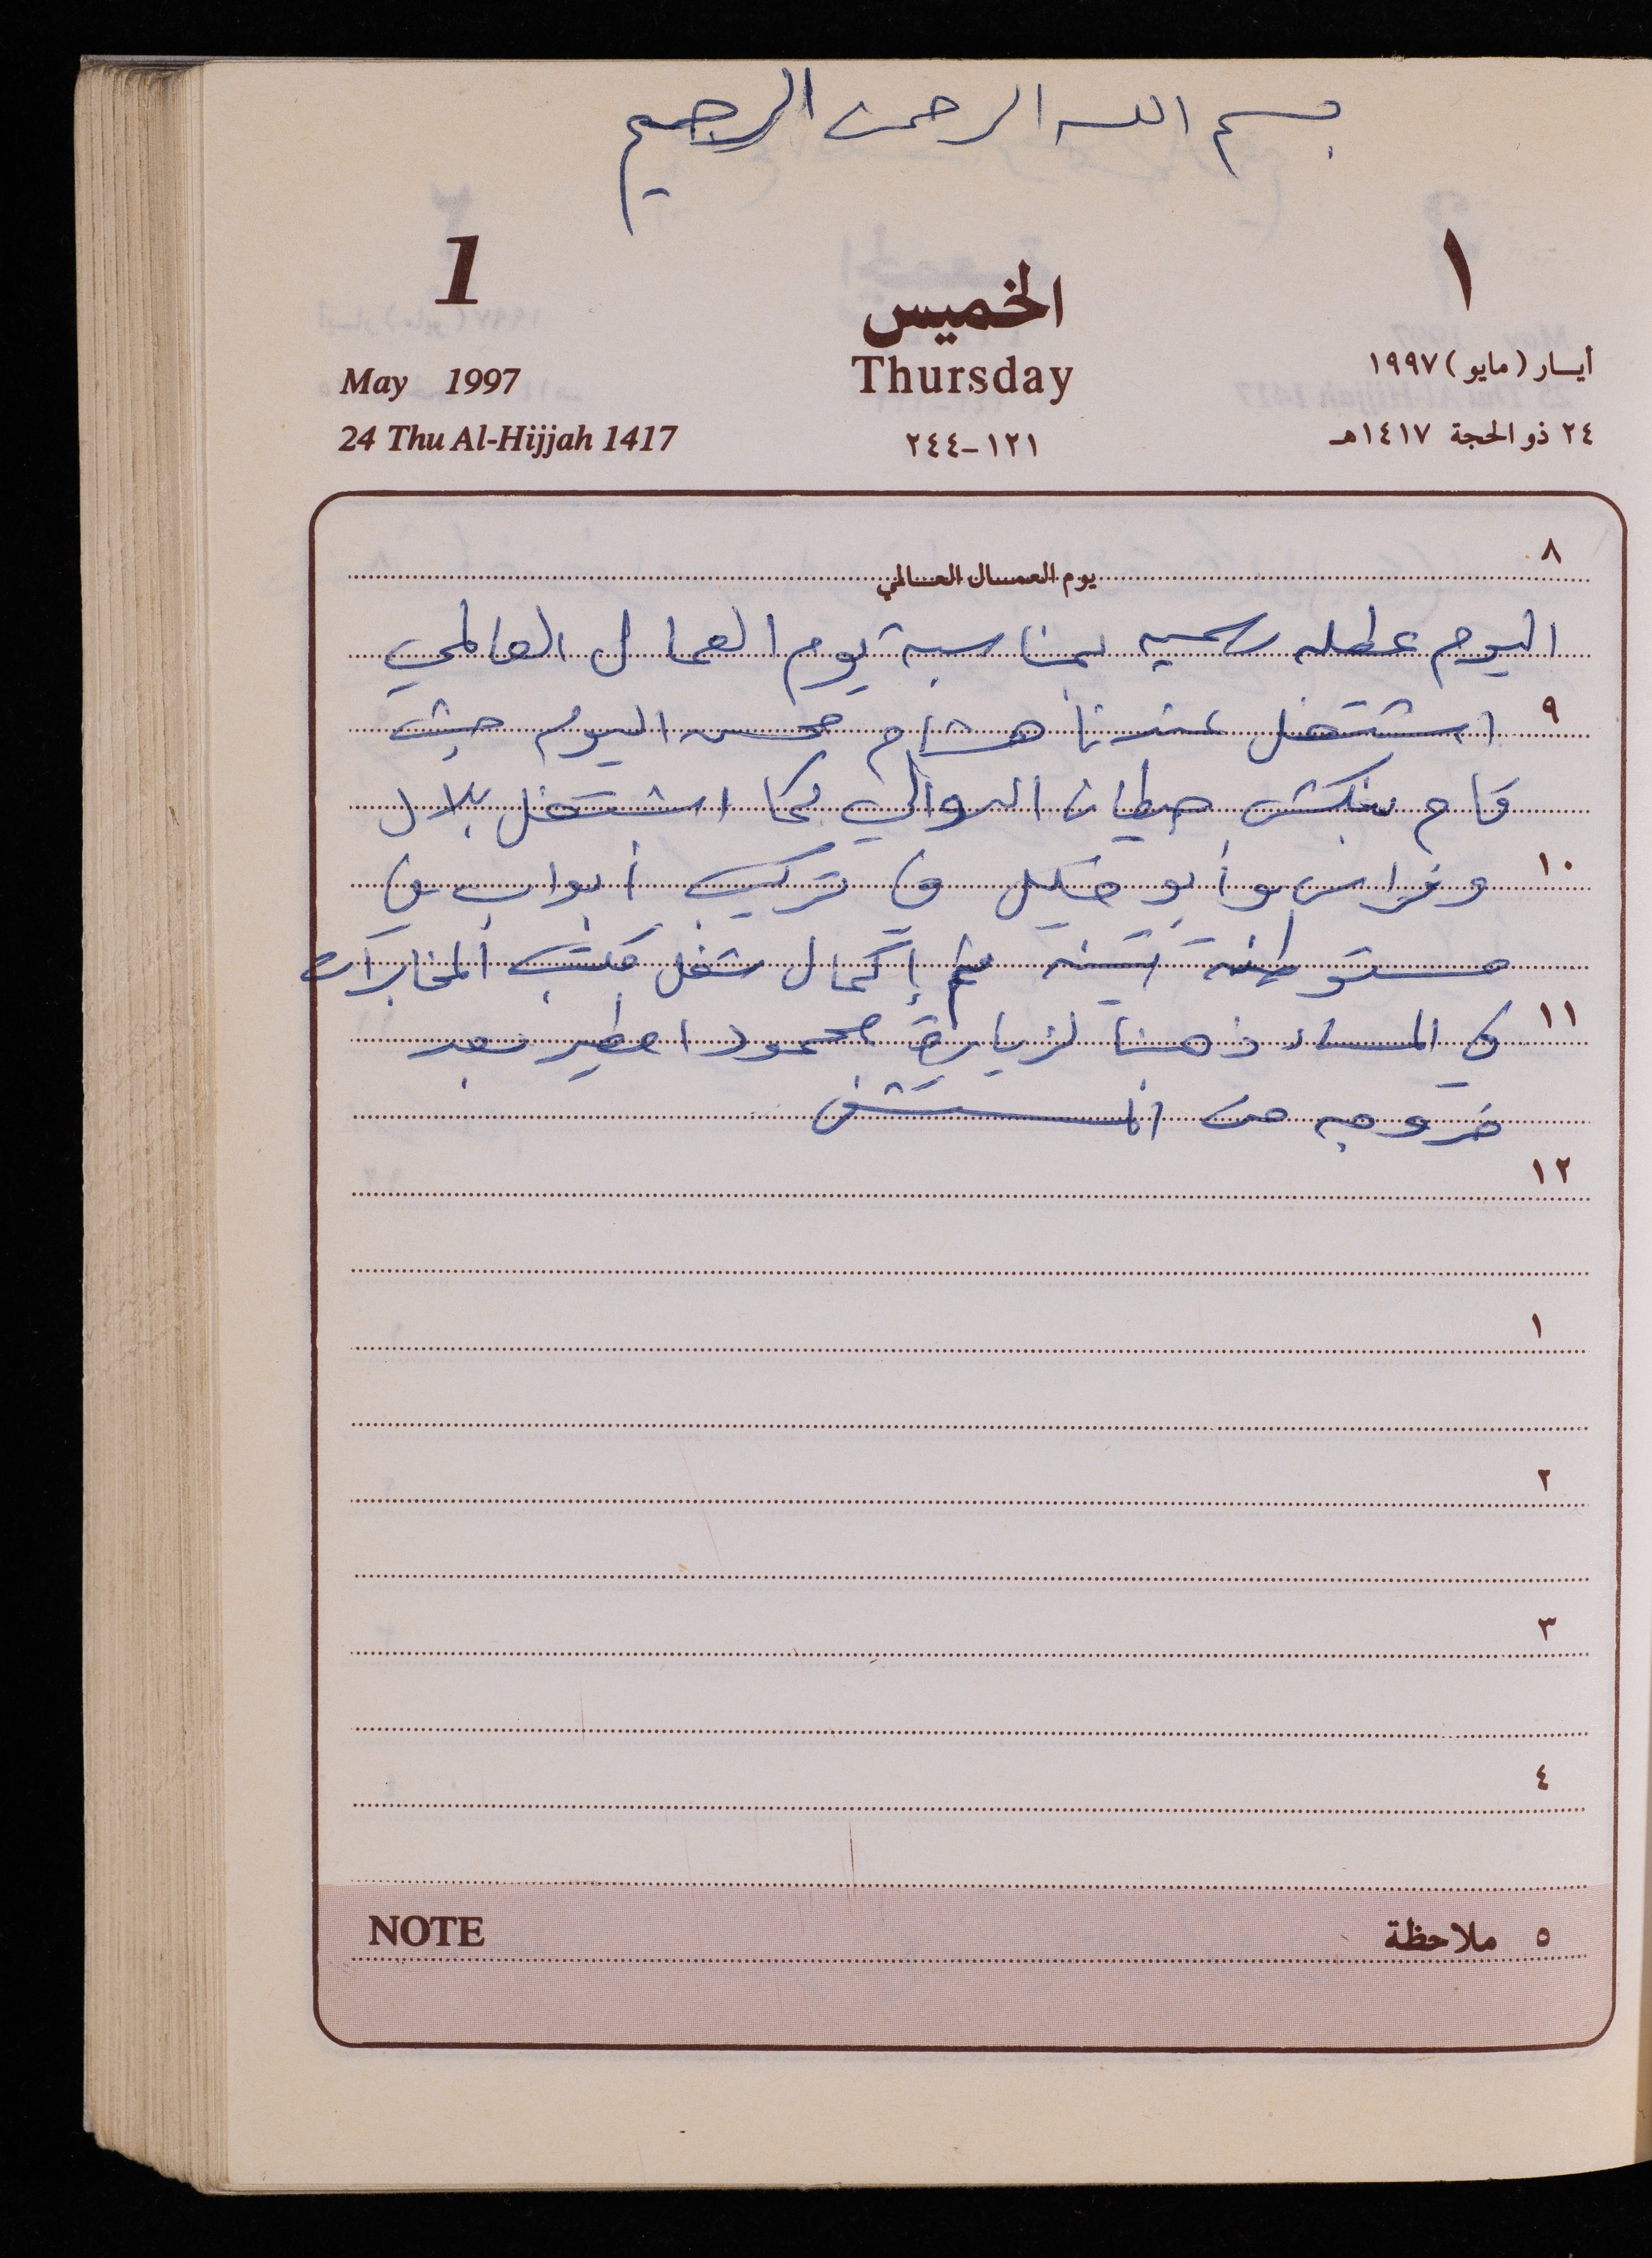 بسم الله الرحمن الرحيم
1
الخميس
١
May 1997
Thursday
أيار (مايو) ١٩٩٧
24 Thu Al-Hijjah 1417
١٢١-٢٤٤
٢٤ ذو الحجة ١٤١٧هـ
٨
يوم العمال العالمي
اليوم عطله رسميه بمناسبة يوم العمال العالمي
٩ اشتغل عندنا هشام محسن اليوم حيث
قام بنكش حيطان الدوالي كما اشتغل بلال
١٠ وفراس وأبو خليل في تركيب أبواب في
مستوطنة ثم إكمال شغل مكتب المخابرات
١١ في المساء ذهبنا لزيارة محمود اطير بعد
خروجه من المستشفى
١٢
١
٢
٣
٤
NOTE
٥ ملاحظة